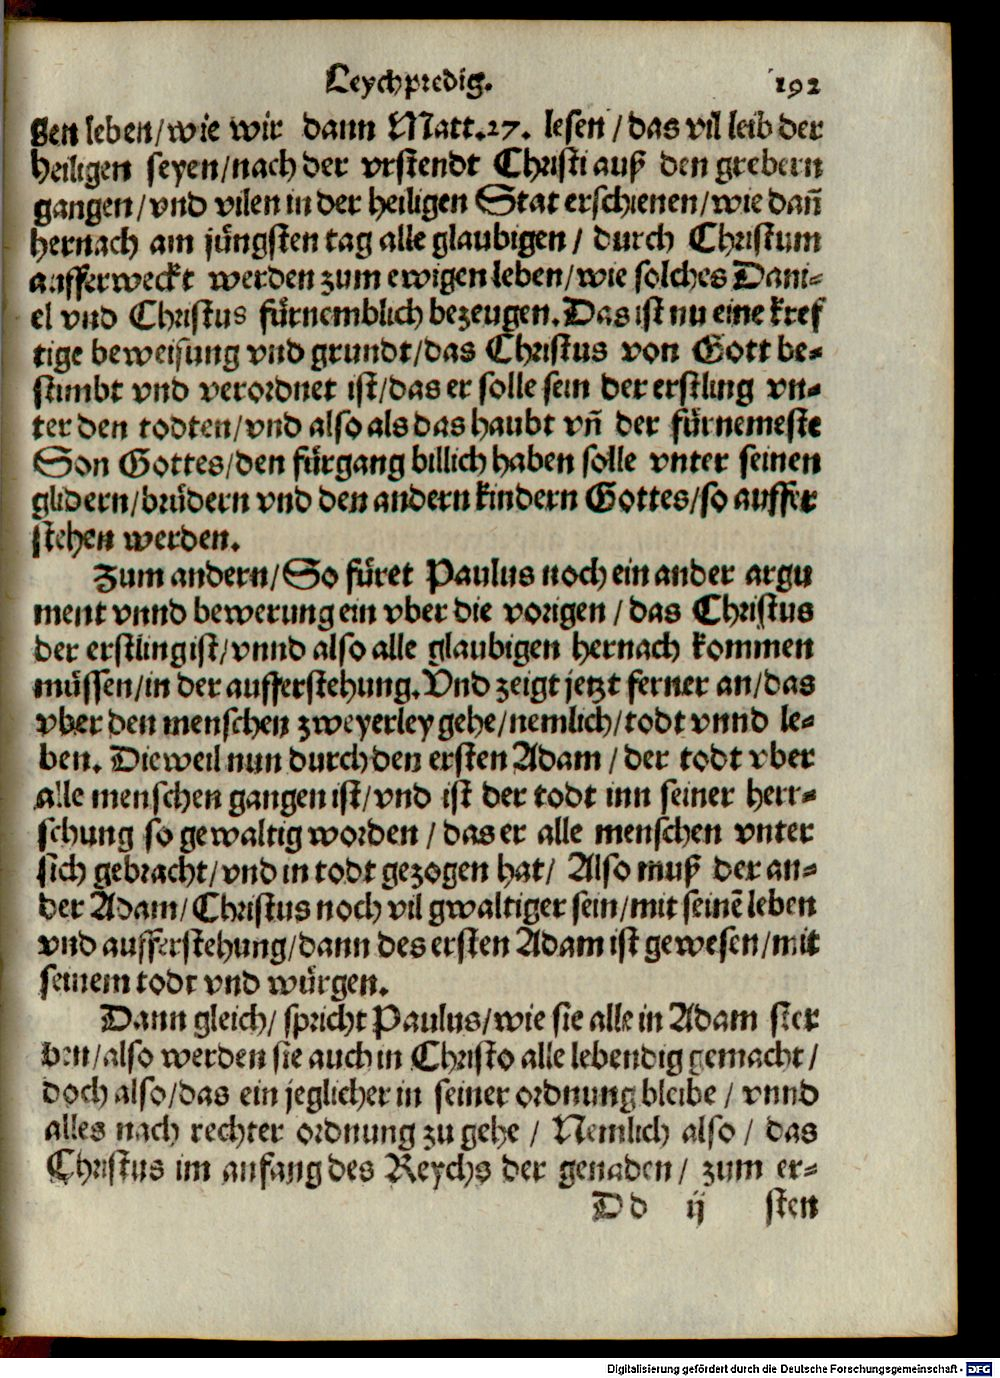 Leychpredig. 192
gen leben/wie wir dann Matt.27. lesen/das vil leib der
heiligen seyen/nach der vrstendt Christi auß den grebern
gangen/vnd vilen in der heiligen Stat erschienen/wie dañ
hernach am jüngsten tag alle glaubigen/ durch Christum
aufferweckt werden zum ewigen leben/wie solches Dani-
el vnd Christus fürnemblich bezeugen. Das ist nu eine kref
tige beweisung vnd grundt/das Christus von Gott be-
stimbt vnd verordnet ist/das er solle sein der erstling vn-
ter den todten/vnd also als das haubt vñ der fürnemeste
Son Gottes/den fürgang billich haben solle vnter seinen
glidern/brüdern vnd den andern kindern Gottes/so auffer
stehen werden.
Zum andern/So füret Paulus noch ein ander argu
ment vnnd bewerung ein vber die vorigen/das Christus
der erstling ist/vnnd also alle glaubigen hernach kommen
müssen/in der aufferstehung. Vnd zeigt jetzt ferner an/das
vber den menschen zweyerley gehe/nemlich/todt vnnd le-
ben. Dieweil nun durch den ersten Adam/der todt vber
alle menschen gangen ist/vnd ist der todt inn seiner herr-
schung so gewaltig worden/das er alle menschen vnter
sich gebracht/vnd in todt gezogen hat/ Also muß der an-
der Adam/Christus noch vil gwaltiger sein/mit seinē leben
vnd aufferstehung/dann des ersten Adam ist gewesen/mit
seinem todt vnd würgen.
Dann gleich/ spricht Paulus/wie sie alle in Adam ster
ben/also werden sie auch in Christo alle lebendig gemacht/
doch also/das ein jeglicher in seiner ordnung bleibe/ vnnd
alles nach rechter ordnung zu gehe/ Nemlich also/ das
Christus im anfang des Reychs der genaden/ zum er-
Dd ij sten
Digitalisierung gefördert durch die Deutsche Forschungsgemeinschaft - DFG